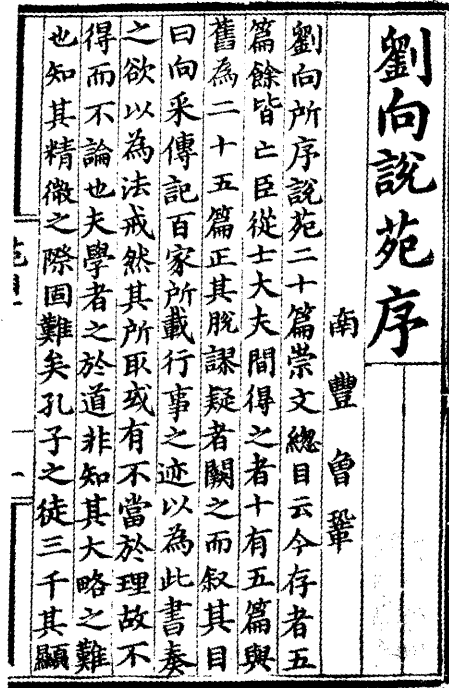 劉向說苑序
南豐曾鞏
劉向所序說苑二十篇崇文緫目云今存者五
篇餘皆亡臣從士大夫間得之者十有五篇與
舊為二十五篇正其脫謬疑者闕之而叙其目
曰向采傳記百家所載行事之迹以為此書奏
之欲以為法戒然其所取或有不當於理故不
得而不論也夫學者之於道非知其大略之難
也知其精微之際固難矣孔子之徒三千其顯